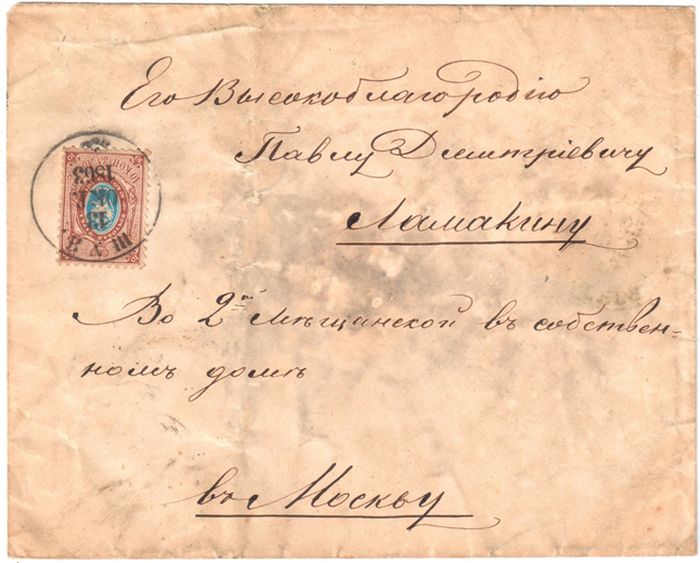 Его Высокоблагородію
Павлу Дмитріевичу
Ламакину
Во 2ой Мѣщанской въ собствен-
номъ домѣ
въ Москву
13
1863